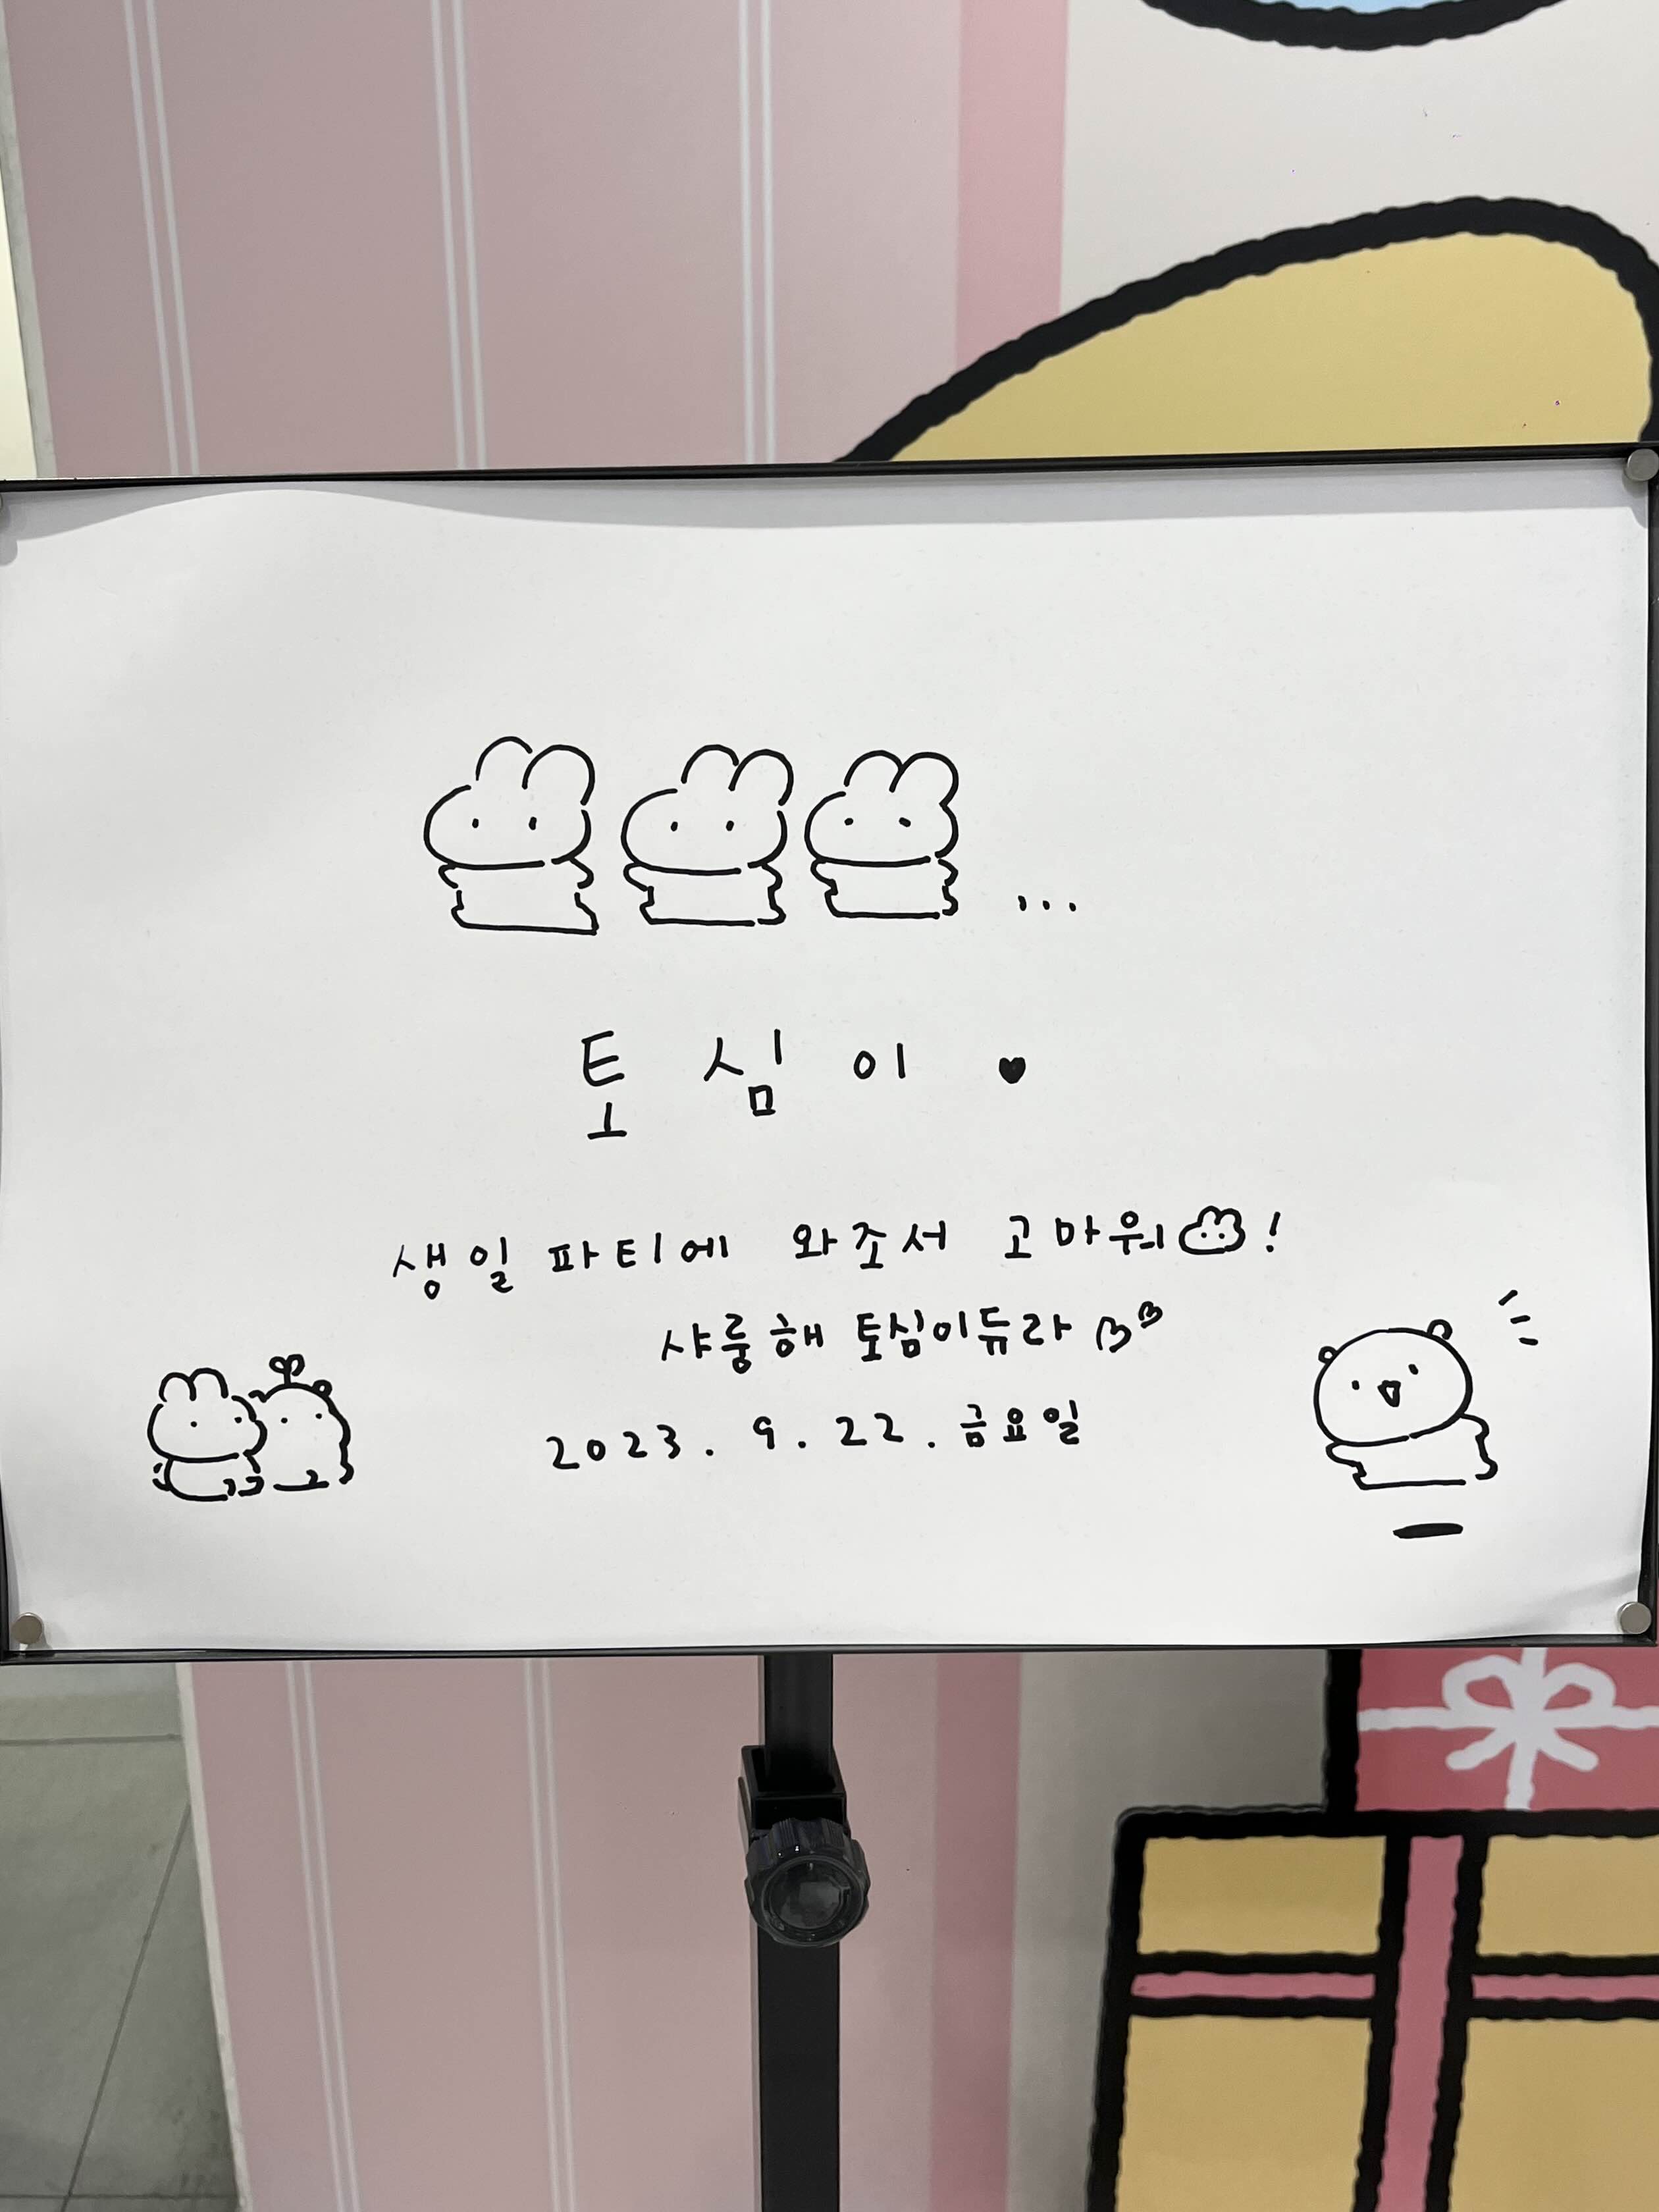 ...
토심이 ♥
생일파티에 와조서 고마워!
샤룽해 토심이듀라
2023. 9. 22. 금요일